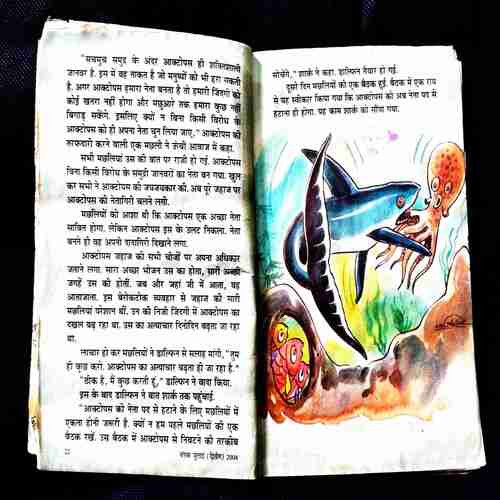 "सचमुच समुद्र के अंदर आक्टोपस ही शक्तिशाली
जानवर है. इस में वह ताकत है जो मनुष्यों को भी हरा सकती
है. अगर आक्टोपस हमारा नेता बनता है तो हमारी जिंदगी को
कोई खतरा नहीं होगा और मछुआरे तक हमारा कुछ नहीं
बिगाड़ सकेंगे. इसलिए क्यों न बिना किसी विरोध के
आक्टोपस को ही अपना नेता चुन लिया जाए," आक्टोपस की
तरफदारी करने वाली एक मछली ने ऊंची आवाज में कहा.
सभी मछलियां उस की बात पर राजी हो गईं. आक्टोपस
बिना किसी विरोध के समुद्री जानवरों का नेता बन गया. खुल
कर सभी ने आक्टोपस की जयजयकार की. अब पूरे जहाज पर
आक्टोपस की नेतागिरी चलने लगी.
मछलियों को आशा थी कि आक्टोपस एक अच्छा नेता
साबित होगा. लेकिन आक्टोपस इस के उलट निकला. नेता
बनते ही वह अपनी दादागिरी दिखाने लगा.
आक्टोपस जहाज की सभी चीजों पर अपना अधिकार
जताने लगा. सारा अच्छा भोजन उस का होता, सारी अच्छी
जगहें उस की होतीं. जब और जहां जी में आता, वह
आताजाता. इस बेरोकटोक व्यवहार से जहाज की सारी
मछलियां परेशान थीं. उन की निजी जिंदगी में आक्टोपस का
दखल बढ़ रहा था. इस का अत्याचार दिनोंदिन बढ़ता जा रहा
था.
लाचार हो कर मछलियों ने डाल्फिन से सलाह मांगी, "तुम
ही कुछ करो. आक्टोपस का अत्याचार बढ़ता ही जा रहा है."
"ठीक है, मैं कुछ करती हूं," डाल्फिन ने वादा किया.
इस के बाद डाल्फिन ने बात शार्क तक पहुंचाई.
"आक्टोपस को नेता पद से हटाने के लिए मछलियों में
एकता होनी जरूरी है. क्यों न हम पहले मछलियों की एक
बैठक रखें. उस बैठक में आक्टोपस से निबटने की तरकीब
22
चंपक जुलाई (द्वितीय) 2004
सोचेंगे," शार्क ने कहा. डाल्फिन तैयार हो गई.
दूसरे दिन मछलियों की एक बैठक हुई. बैठक में एक राय
से यह स्वीकार किया गया कि आक्टोपस को अब नेता पद से
हटाना ही होगा. यह काम शार्क को सौंपा गया.